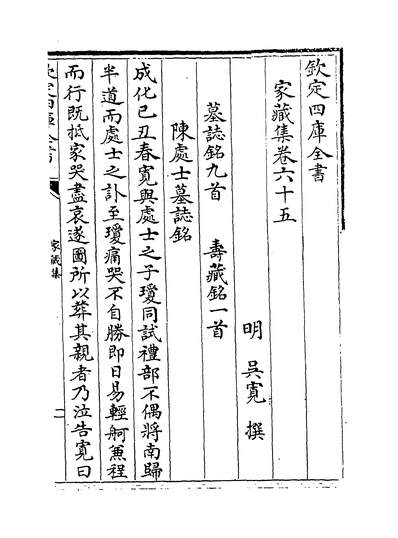 欽定四庫全書
家藏集卷六十五
明 吳寬 撰
墓誌銘九首 壽藏銘一首
陳處士墓誌銘
成化己丑春寬與處士之子瓊同試禮部不偶將南歸
半道而處士之訃至瓊痛哭不自勝即日易輕舸兼程
而行既抵家哭盡哀遂圖所以葬其親者乃泣告寬曰
家藏集